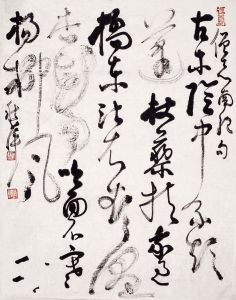 僧志南詩句
古木陰中系短
篷杖藜扶我過
橋東沾衣欲濕
杏花雨吹面不寒
楊柳風